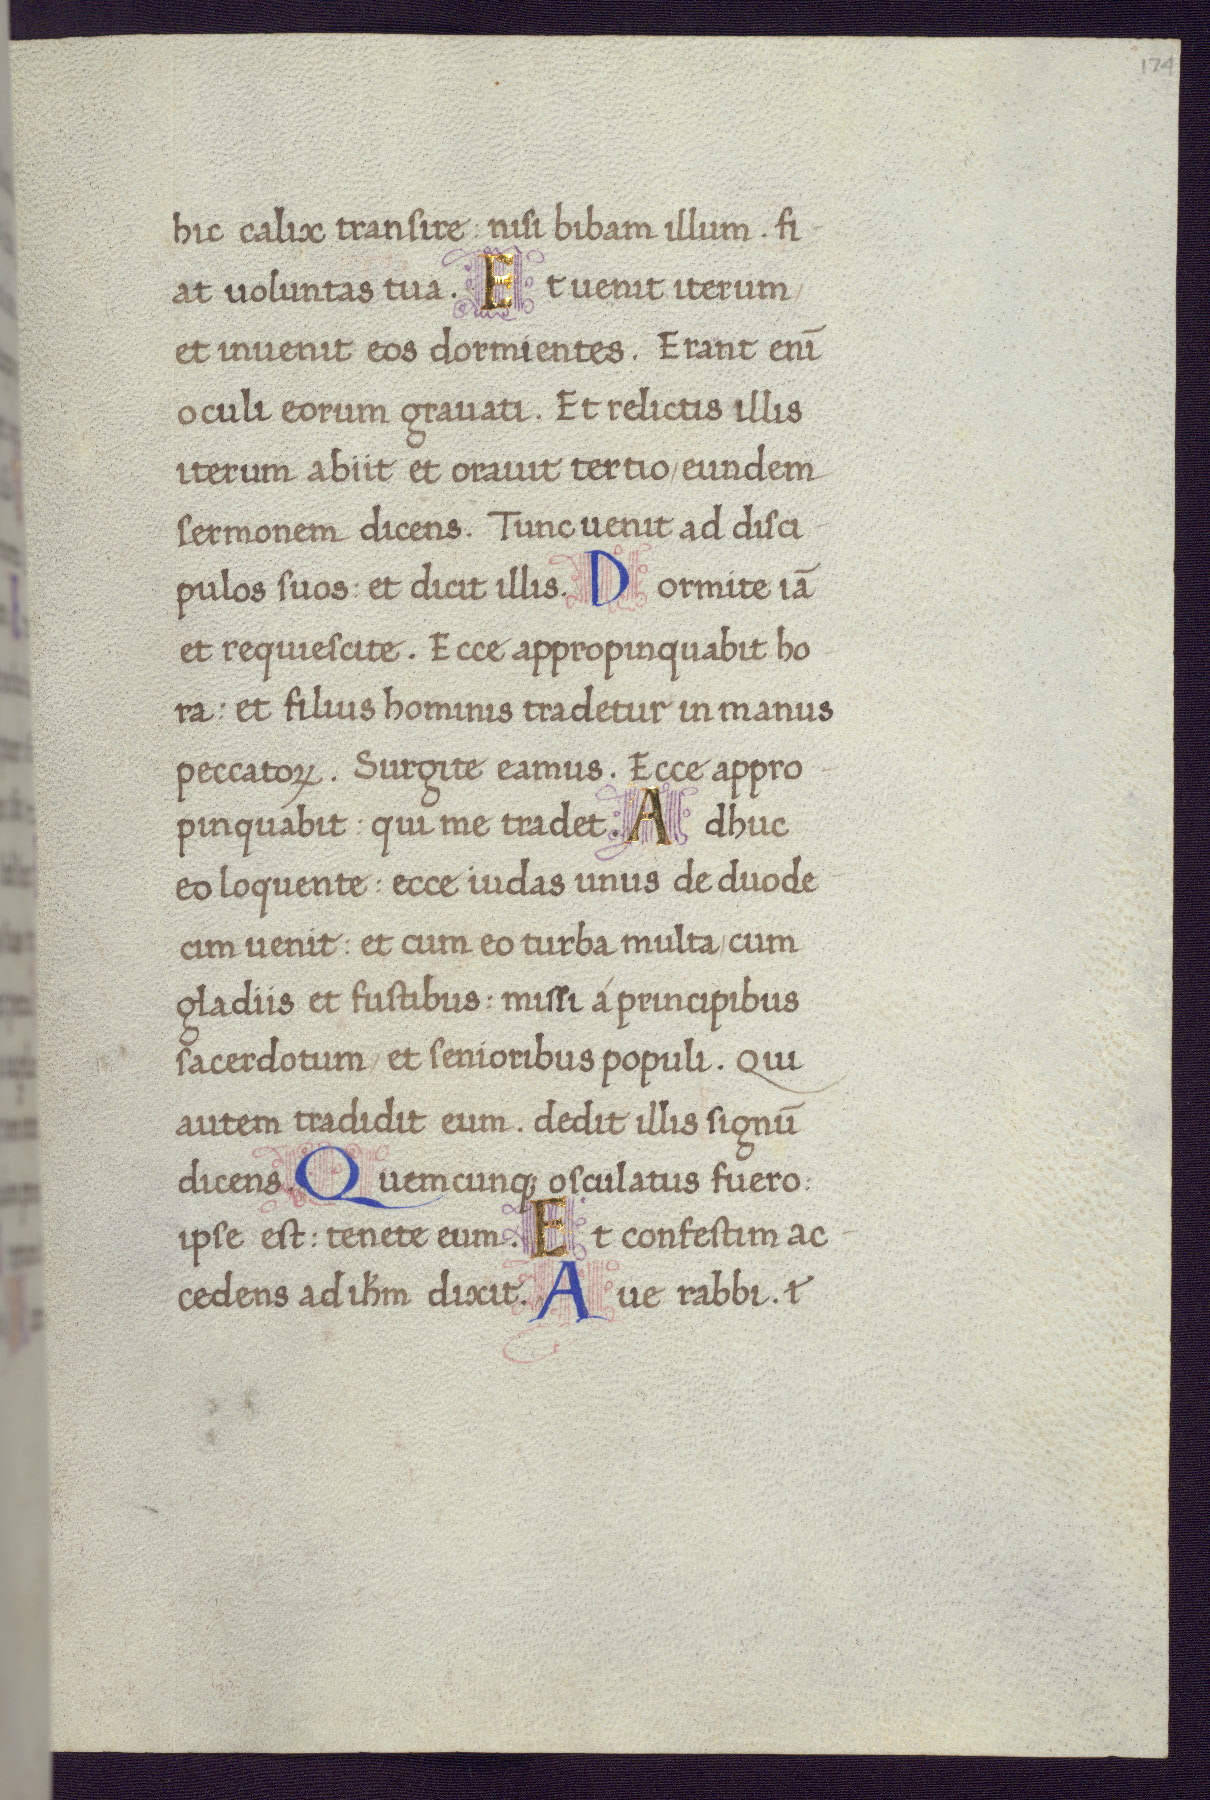 174
hic calix transire : nisi bibam illum . fi
at uoluntas tua . Et uenit iterum /
et inuenit eos dormientes . Erant enī
oculi eorum grauati . Et relictis illis
iterum abiit et orauit tertio / eundem
sermonem dicens . Tunc uenit ad disci
pulos suos : et dicit illis . Dormite iā
et requiescite . Ecce appropinquabit ho
ra : et filius hominis tradetur in manus
peccatoꝝ . Surgite eamus . Ecce appro
pinquabit : qui me tradet . Adhuc
eo loquente : ecce iudas unus de duode
cim uenit : et cum eo turba multa / cum
gladiis et fustibus : missi á principibus
sacerdotum / et senioribus populi . Qui
autem tradidit eum . dedit illis signū
dicens . Quemcunqꝫ osculatus fuero :
ipse est : tenete eum . Et confestim ac
cedens ad ihm̄ dixit . Aue rabbi . &